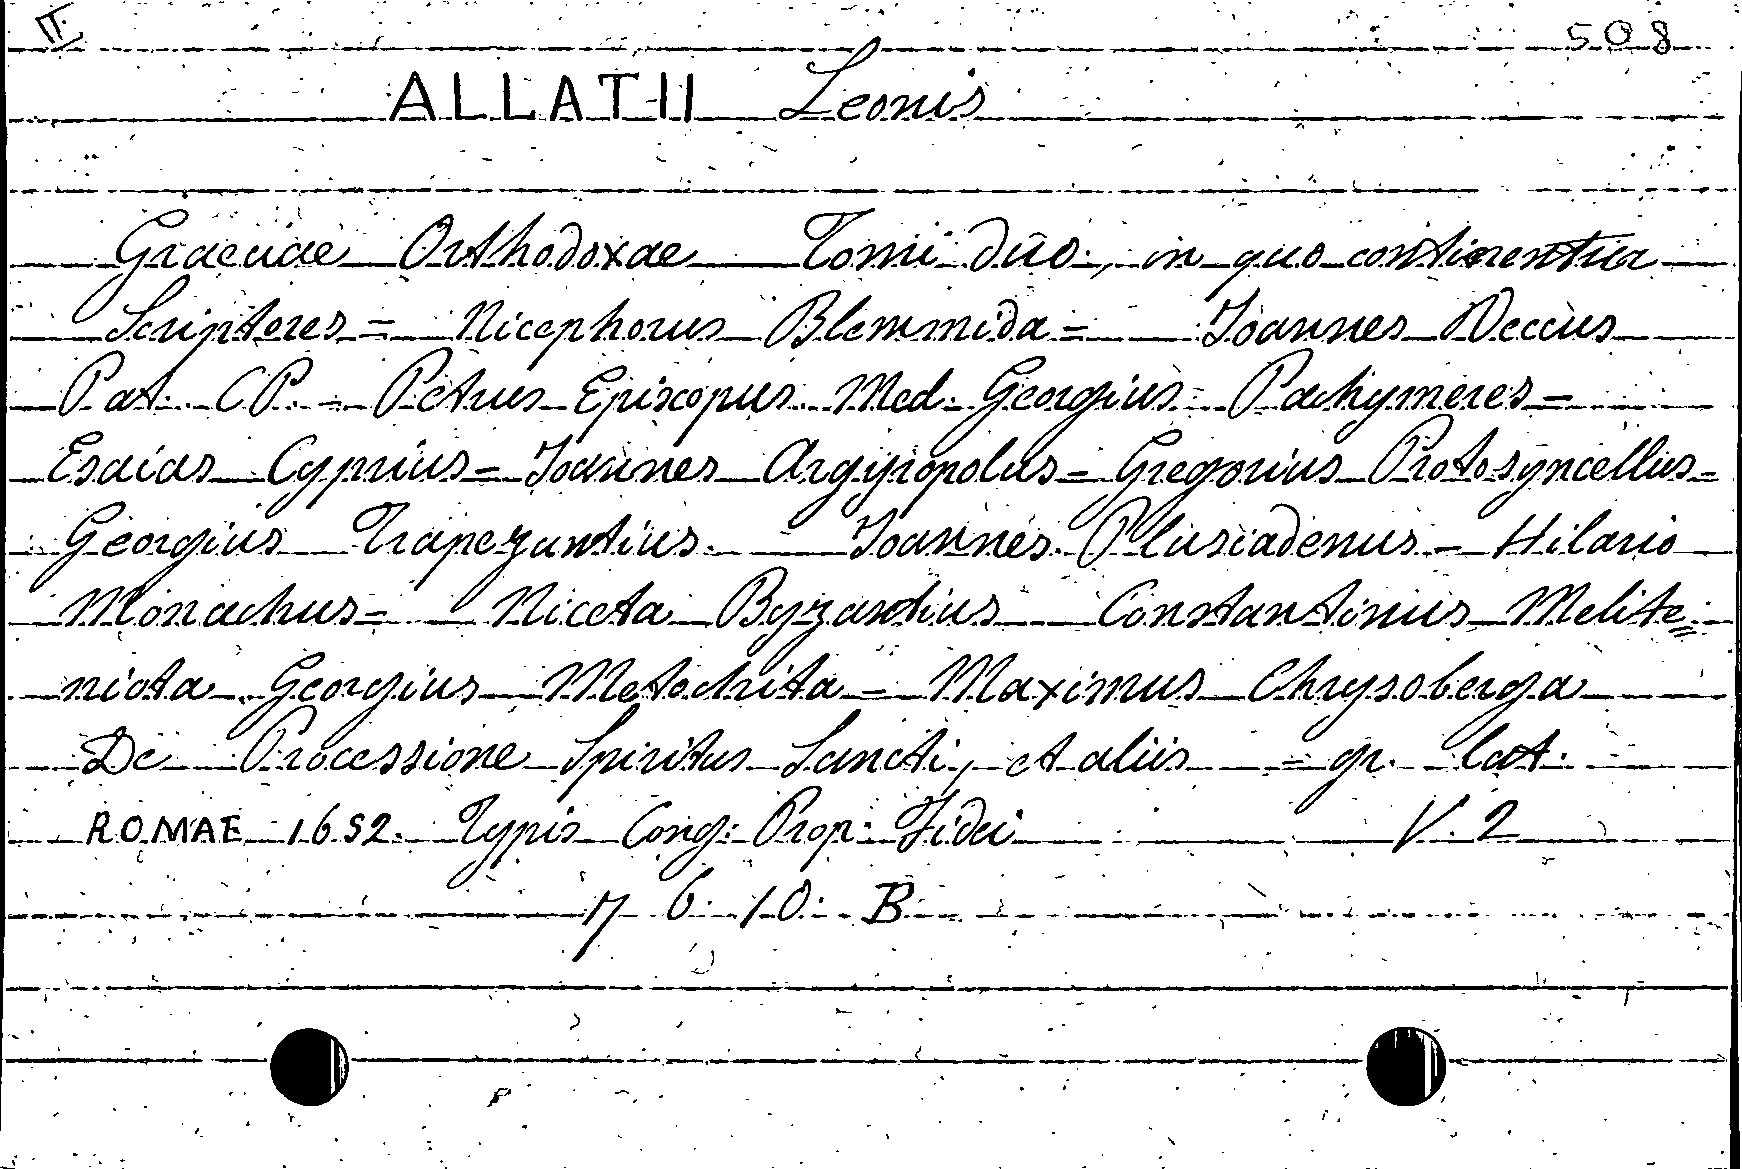 II.
508
ALLATII Leonis
Graeciae Orthodoxae Tomi duo, in quo continentur
Scriptores = Nicephorus Blemmida = Joannes Veccus
Pat. CP. - Petrus Episcopus Med. Georgius Pachymeres =
Esaias Cyprius = Joannes Argyropolus = Gregorius Protosyncellus =
Georgius Trapezuntius. Joannes Plusiadenus - Hilario
Monachus = Niceta Byzantius Constantinus Melite=
niota Georgius Metochita = Maximus Chrysoberga
De Processione Spiritus Sancti, et aliis = gr. lat.
ROMAE 1652. Typis Cong: Prop: Fidei V. 2
6. 10. B